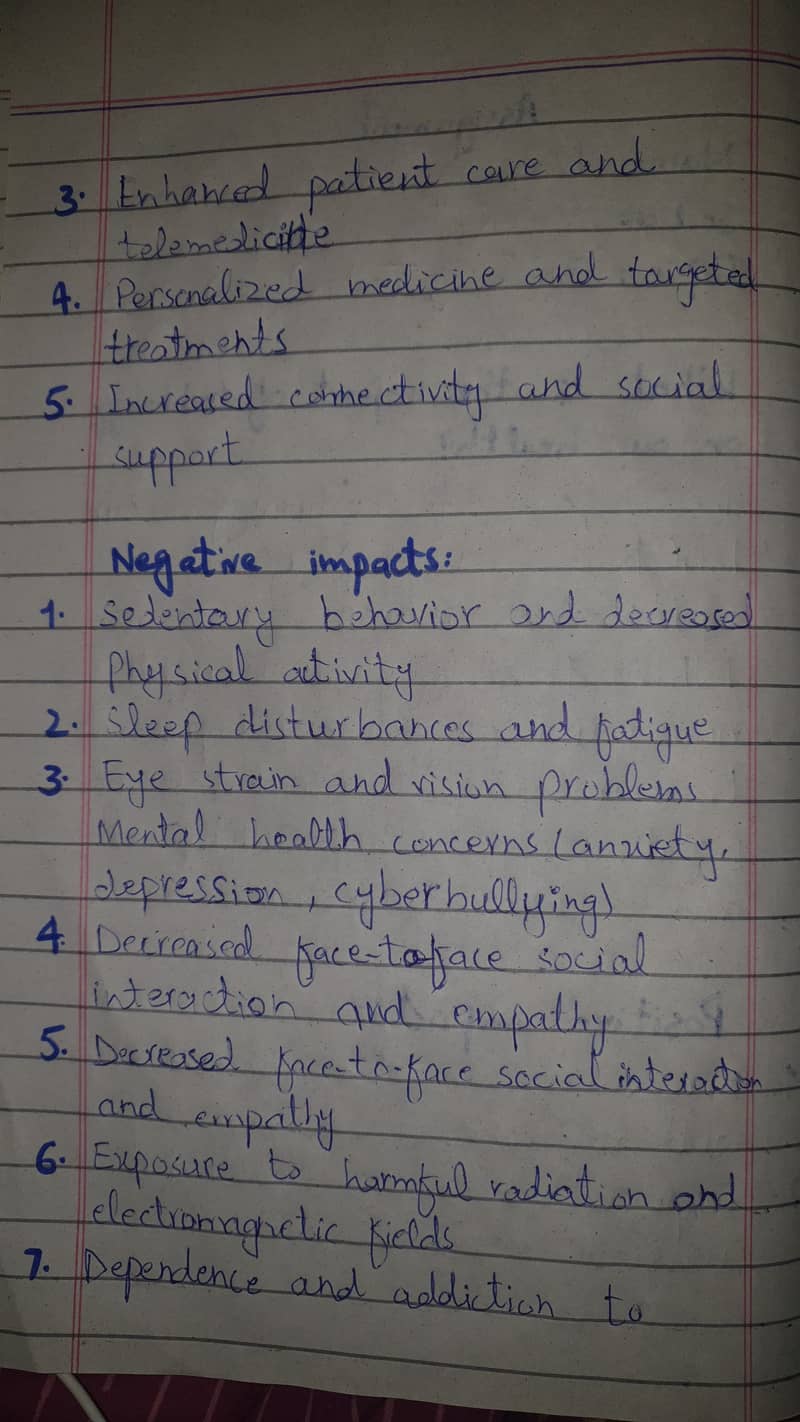 3. Enhanced patient care and
telemedicine
4. Personalized medicine and targeted
treatments
5. Increased connectivity and social
support
Negative impacts:
1. Sedentary behavior and decreased
Physical activity
2. Sleep disturbances and fatigue
3. Eye strain and vision problems
Mental health concerns (anxiety,
depression, cyberbullying)
4. Decreased face-to-face social
interaction and empathy
5. Decreased face-to-face social interaction
and empathy
6. Exposure to harmful radiation and
electromagnetic fields
7. Dependence and addiction to